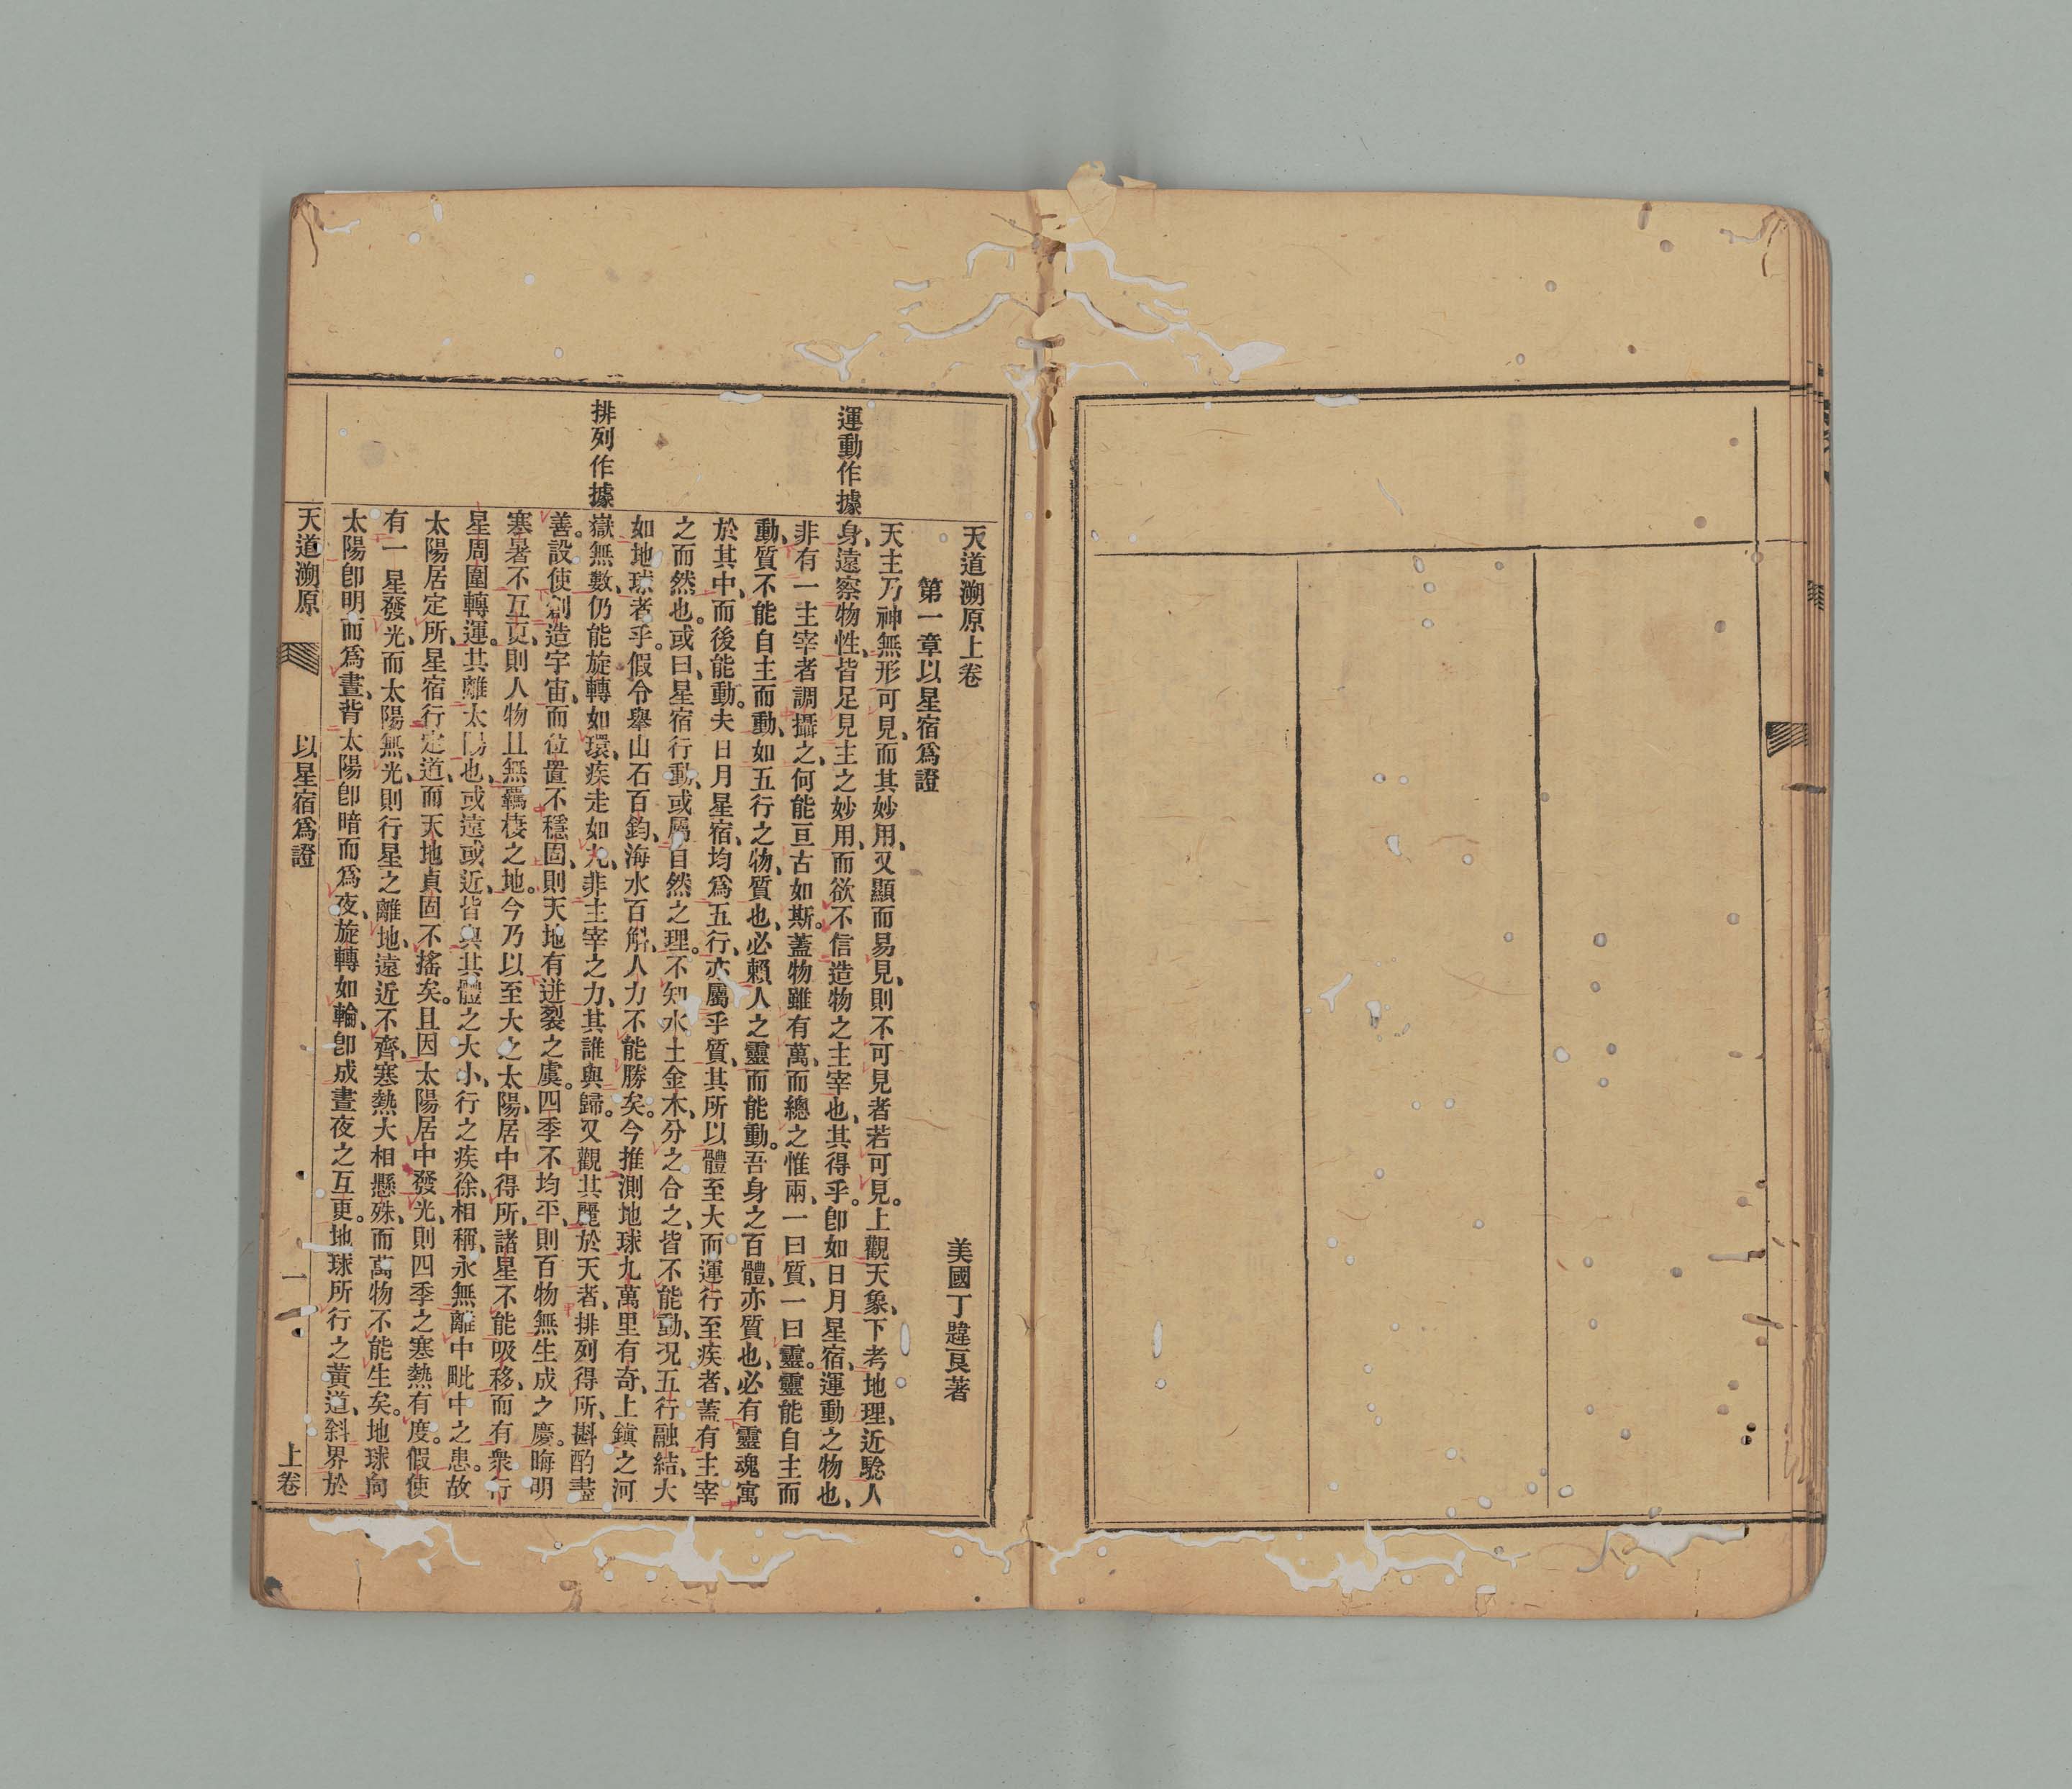 天道溯原上卷
美國丁韙良著
第一章以星宿爲證
運動作據
天主乃神無形可見、而其妙用、又顯而易見、則不可見者若可見。上觀天象、下考地理、近騐人
身、遠察物性、皆足見主之妙用、而欲不信造物之主宰也、其得乎。卽如日月星宿、運動之物也、
非有一主宰者調攝之、何能亘古如斯。蓋物雖有萬、而總之惟兩、一曰質、一曰靈。靈能自主而
動、質不能自主而動、如五行之物、質也、必賴人之靈而能動。吾身之百體、亦質也、必有靈魂寓
於其中、而後能動。夫日月星宿、均爲五行、亦屬乎質、其所以體至大而運行至疾者、蓋有主宰
之而然也。或曰、星宿行動、或屬自然之理。不知水土金木、分之合之、皆不能動、况五行融結、大
如地球者乎。假令舉山石百鈞、海水百斛、人力不能勝矣。今推測地球九萬里有奇、上鎭之河
排列作據
嶽無數、仍能旋轉如環、疾走如丸、非主宰之力、其誰與歸。又觀其麗於天者、排列得所、斟酌盡
善。設使創造宇宙、而位置不穩固、則天地有迸裂之虞。四季不均平、則百物無生成之慶。晦明
寒暑不互更、則人物且無羈棲之地。今乃以至大之太陽、居中得所、諸星不能吸移、而有衆行
星周圍轉運。其離太陽也、或遠或近、皆與其體之大小、行之疾徐、相稱、永無離中毗中之患。故
太陽居定所、星宿行定道、而天地貞固不搖矣。且因太陽居中發光、則四季之寒熱有度。假使
有一星發光、而太陽無光、則行星之離地、遠近不齊、寒熱大相懸殊、而萬物不能生矣。地球向
太陽卽明而爲晝、背太陽卽暗而爲夜、旋轉如輪、卽成晝夜之互更。地球所行之黃道、斜界於
天道溯原
以星宿爲證
一
上卷